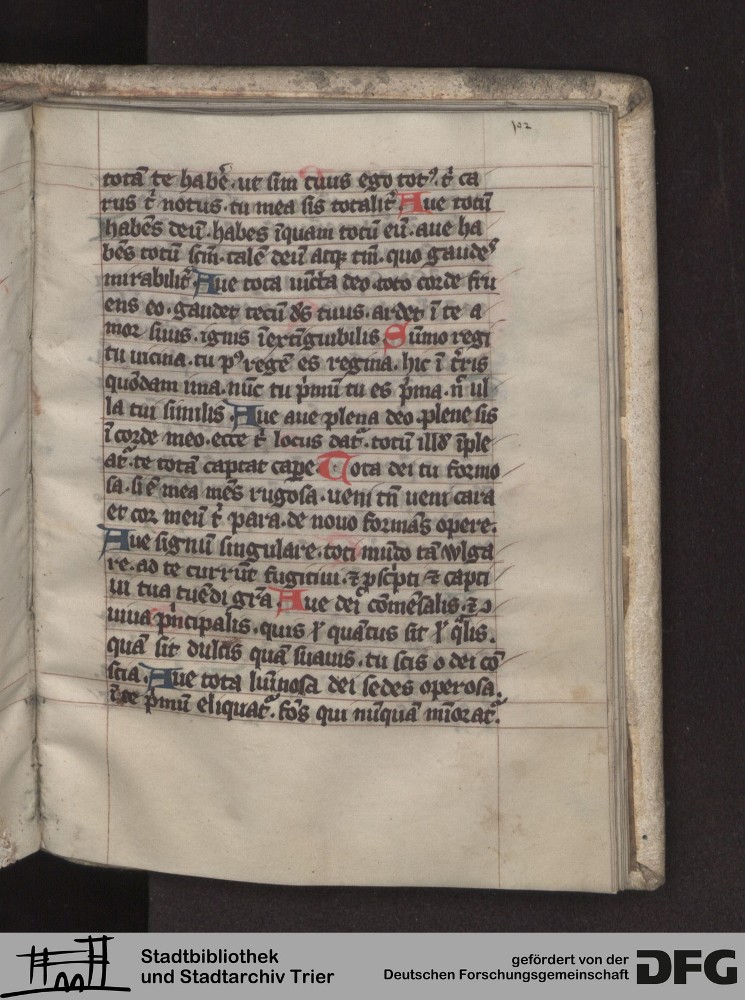 102
totā te habē. ut sim tuus ego tot⁹. t͛ ca
rus t͛ notus. tu mea sis totalit͛. Aue totū
habēs deū. habes īquam totū eū. aue ha
bēs totū sc̄m. talē deū atq; tm̄. quo gaudeˢ
mirabilit͛ Aue tota iūcta deo. toto corde fru
ens eo. gaudet tecū d̄s tuus. ardet ī te a
mor suus. ignis īextīguibilis Sūmo regi
tu uicina. tu p⁹ regē es regina. hic ī t͛ris
quōdam una. nūc tu pͥmū tu es pͥma. n̄ ul
la tui similis Aue aue plena deo. plene sis
ī corde meo. ecce t͛ locus dat᷑. totū illđ īple
at᷑. te totā captat cape. Tota dei tu formo
sa. si ē mea mēs rugosa. ueni tū ueni cara
et cor meū t͛ para. de nouo formās opere.
Aue signū singulare. toti mūdo tā wlga
re. ad te currūt fugitiui. ⁊ pͦscͥpti ⁊ capti
ui tua tuēdi gr̄a Aue dei cōmēsalis. ⁊ ɔ
uiua pͥncipalis. quis ł quātus sit ł q̄lis.
quā sit dulcis quā suauis. tu scis o dei cō
scia. Aue tota lumīosa dei sedes operosa.
ī te pͥmū eliquat᷑. fōs qui nūquā mīorat᷑.
Stadtbibliothek
und Stadtarchiv Trier
gefördert von der
Deutschen Forschungsgemeinschaft
DFG